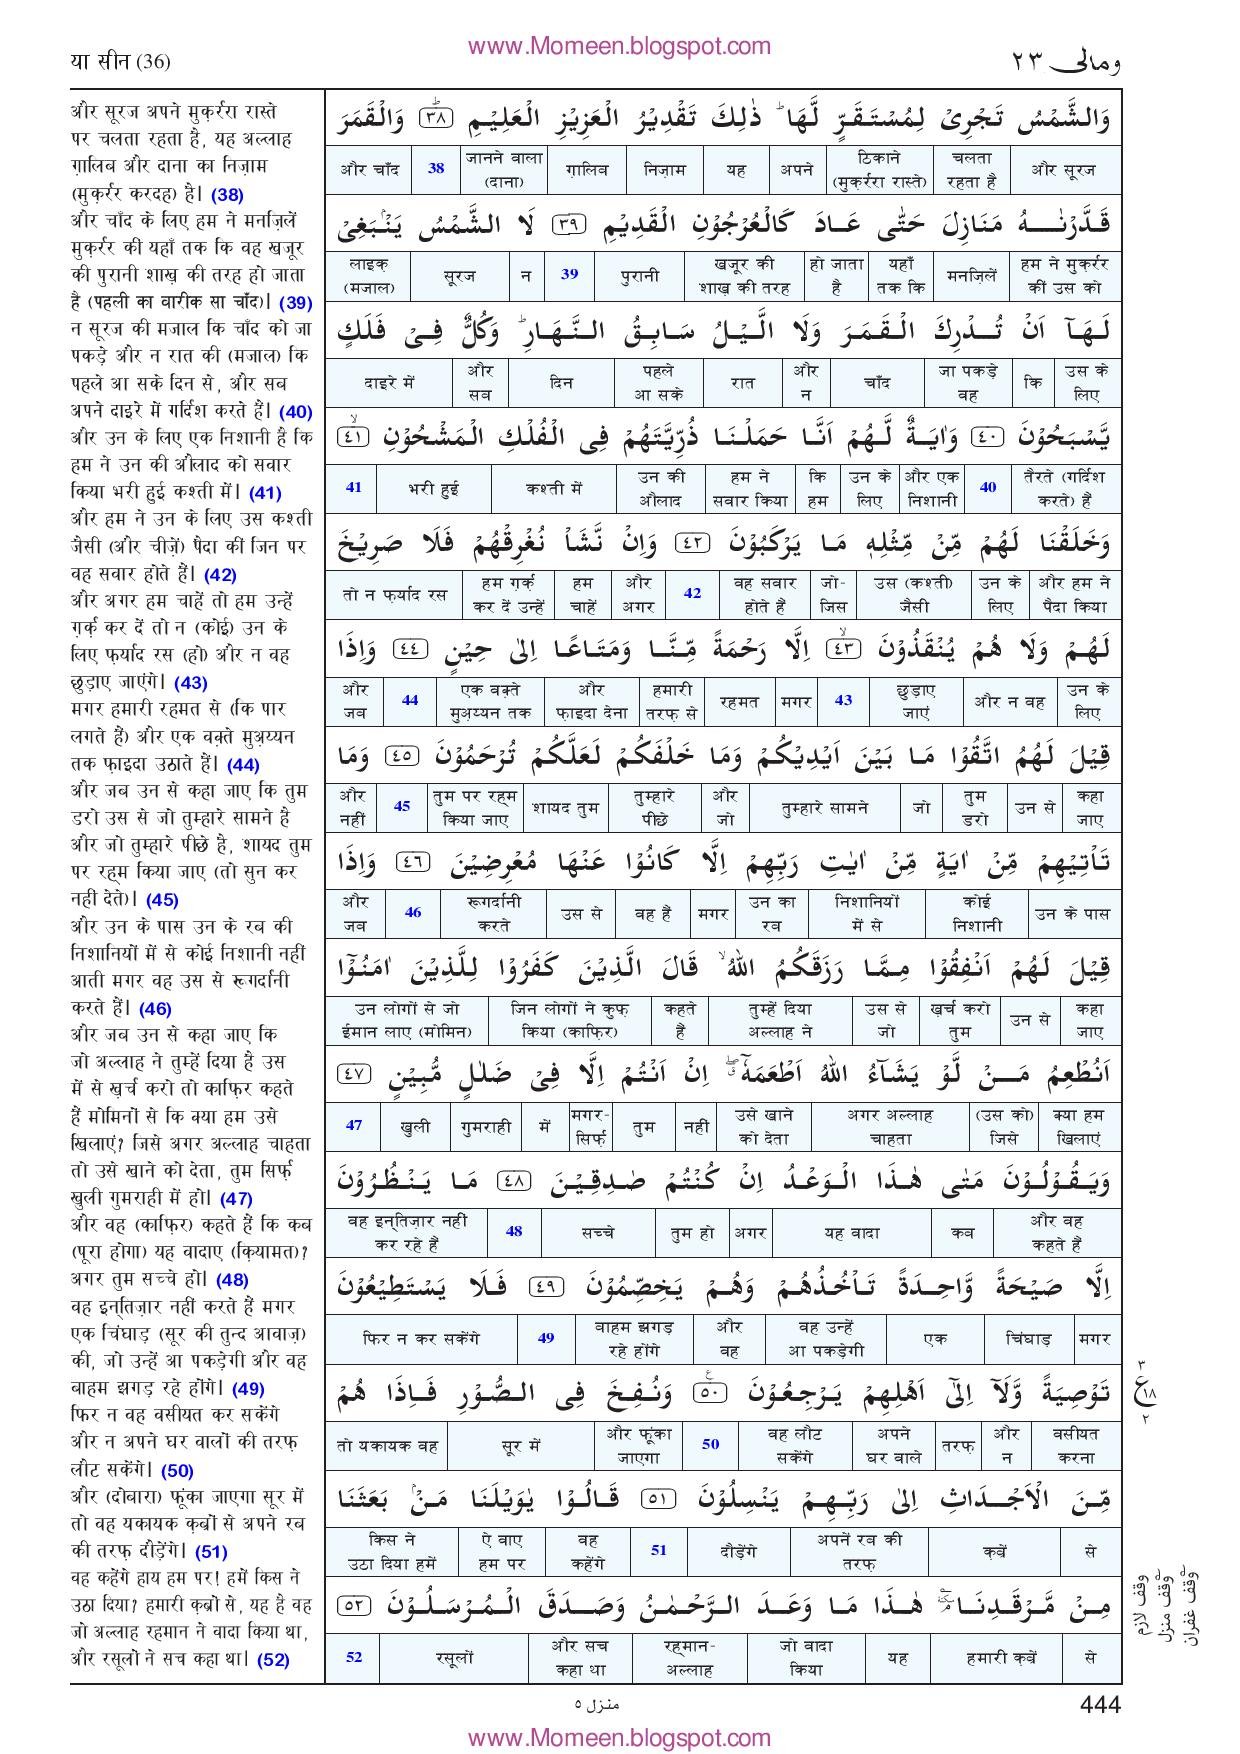 www.Momeen.blogspot.com
या सीन (36)
ومالی ٢٣
और सूरज अपने मुक़र्ररा रास्ते
पर चलता रहता है, यह अल्लाह
ग़ालिब और दाना का निज़ाम
(मुक़र्रर करदह) है। (38)
और चाँद के लिए हम ने मनज़िलें
मुक़र्रर की यहाँ तक कि वह खजूर
की पुरानी शाख़ की तरह हो जाता
है (पहली का बारीक सा चाँद)। (39)
न सूरज की मजाल कि चाँद को जा
पकड़े और न रात की (मजाल) कि
पहले आ सके दिन से, और सब
अपने दाइरे में गर्दिश करते हैं। (40)
और उन के लिए एक निशानी है कि
हम ने उन की औलाद को सवार
किया भरी हुई कश्ती में। (41)
और हम ने उन के लिए उस कश्ती
जैसी (और चीज़ें) पैदा कीं जिन पर
वह सवार होते हैं। (42)
और अगर हम चाहें तो हम उन्हें
ग़र्क़ कर दें तो न (कोई) उन के
लिए फ़र्याद रस (हो) और न वह
छुड़ाए जाएंगे। (43)
मगर हमारी रहमत से (कि पार
लगते हैं) और एक वक़्ते मुअय्यन
तक फ़ाइदा उठाते हैं। (44)
और जब उन से कहा जाए कि तुम
डरो उस से जो तुम्हारे सामने है
और जो तुम्हारे पीछे है, शायद तुम
पर रहम किया जाए (तो सुन कर
नही देते)। (45)
और उन के पास उन के रब की
निशानियों में से कोई निशानी नहीं
आती मगर वह उस से रूगर्दानी
करते हैं। (46)
और जब उन से कहा जाए कि
जो अल्लाह ने तुम्हें दिया है उस
में से ख़र्च करो तो काफ़िर कहते
हैं मोमिनों से कि क्या हम उसे
खिलाएं? जिसे अगर अल्लाह चाहता
तो उसे खाने को देता, तुम सिर्फ़
खुली गुमराही में हो। (47)
और वह (काफ़िर) कहते हैं कि कब
(पूरा होगा) यह वादाए (क़ियामत)?
अगर तुम सच्चे हो। (48)
वह इन्तिज़ार नहीं करते हैं मगर
एक चिंघाड़ (सूर की तुन्द आवाज़)
की, जो उन्हें आ पकड़ेगी और वह
बाहम झगड़ रहे होंगे। (49)
फिर न वह वसीयत कर सकेंगे
और न अपने घर वालों की तरफ़
लौट सकेंगे। (50)
और (दोबारा) फूंका जाएगा सूर में
तो वह यकायक क़ब्रों से अपने रब
की तरफ़ दौड़ेंगे। (51)
वह कहेंगे हाय हम पर! हमें किस ने
उठा दिया? हमारी क़ब्रों से, यह है वह
जो अल्लाह रहमान ने वादा किया था,
और रसूलों ने सच कहा था। (52)
وَالشَّمْسُ تَجْرِىْ لِمُسْتَقَرٍّ لَّهَا ؕ ذٰلِكَ تَقْدِيْرُ الْعَزِيْزِ الْعَلِيْمِ ؕ ٣٨ وَالْقَمَرَ
और सूरज चलता रहता है ठिकाने (मुक़र्ररा रास्ते) अपने यह निज़ाम ग़ालिब जानने वाला (दाना) 38 और चाँद
قَدَّرْنٰهُ مَنَازِلَ حَتّٰى عَادَ كَالْعُرْجُوْنِ الْقَدِيْمِ ٣٩ لَا الشَّمْسُ يَنْۢبَغِىْ
हम ने मुक़र्रर कीं उस को मनज़िलें यहाँ तक कि हो जाता है खजूर की शाख़ की तरह पुरानी 39 न सूरज लाइक़ (मजाल)
لَهَاۤ اَنْ تُدْرِكَ الْقَمَرَ وَلَا الَّيْلُ سَابِقُ النَّهَارِ ؕ وَكُلٌّ فِىْ فَلَكٍ
उस के लिए कि जा पकड़े वह चाँद और न रात पहले आ सके दिन और सब दाइरे में
يَّسْبَحُوْنَ ٤٠ وَاٰيَةٌ لَّهُمْ اَنَّا حَمَلْنَا ذُرِّيَّتَهُمْ فِى الْفُلْكِ الْمَشْحُوْنِ ۙ ٤١
तैरते (गर्दिश करते) हैं 40 और एक निशानी उन के लिए कि हम हम ने सवार किया उन की औलाद कश्ती में भरी हुई 41
وَخَلَقْنَا لَهُمْ مِّنْ مِّثْلِهٖ مَا يَرْكَبُوْنَ ٤٢ وَاِنْ نَّشَاْ نُغْرِقْهُمْ فَلَا صَرِيْخَ
और हम ने पैदा किया उन के लिए उस (कश्ती) जैसी जो-जिस वह सवार होते हैं 42 और अगर हम चाहें हम ग़र्क़ कर दें उन्हें तो न फ़र्याद रस
لَهُمْ وَلَا هُمْ يُنْقَذُوْنَ ۙ ٤٣ اِلَّا رَحْمَةً مِّنَّا وَمَتَاعًا اِلٰى حِيْنٍ ٤٤ وَاِذَا
उन के लिए और न वह छुड़ाए जाएं 43 मगर रहमत हमारी तरफ़ से और फ़ाइदा देना एक वक़्ते मुअय्यन तक 44 और जब
قِيْلَ لَهُمُ اتَّقُوْا مَا بَيْنَ اَيْدِيْكُمْ وَمَا خَلْفَكُمْ لَعَلَّكُمْ تُرْحَمُوْنَ ٤٥ وَمَا
कहा जाए उन से तुम डरो जो तुम्हारे सामने और जो तुम्हारे पीछे शायद तुम तुम पर रहम किया जाए 45 और नहीं
تَاْتِيْهِمْ مِّنْ اٰيَةٍ مِّنْ اٰيٰتِ رَبِّهِمْ اِلَّا كَانُوْا عَنْهَا مُعْرِضِيْنَ ٤٦ وَاِذَا
उन के पास कोई निशानी निशानियों में से उन का रब मगर वह हैं उस से रूगर्दानी करते 46 और जब
قِيْلَ لَهُمْ اَنْفِقُوْا مِمَّا رَزَقَكُمُ اللّٰهُ ۙ قَالَ الَّذِيْنَ كَفَرُوْا لِلَّذِيْنَ اٰمَنُوْۤا
कहा जाए उन से ख़र्च करो तुम उस से जो तुम्हें दिया अल्लाह ने कहते हैं जिन लोगों ने कुफ़्र किया (काफ़िर) उन लोगों से जो ईमान लाए (मोमिन)
اَنُطْعِمُ مَنْ لَّوْ يَشَآءُ اللّٰهُ اَطْعَمَهٗۤ ۖ اِنْ اَنْتُمْ اِلَّا فِىْ ضَلٰلٍ مُّبِيْنٍ ٤٧
क्या हम खिलाएं (उस को) जिसे अगर अल्लाह चाहता उसे खाने को देता नहीं तुम मगर-सिर्फ़ में गुमराही खुली 47
وَيَقُوْلُوْنَ مَتٰى هٰذَا الْوَعْدُ اِنْ كُنْتُمْ صٰدِقِيْنَ ٤٨ مَا يَنْظُرُوْنَ
और वह कहते हैं कब यह वादा अगर तुम हो सच्चे 48 वह इन्तिज़ार नहीं कर रहे हैं
اِلَّا صَيْحَةً وَّاحِدَةً تَاْخُذُهُمْ وَهُمْ يَخِصِّمُوْنَ ٤٩ فَلَا يَسْتَطِيْعُوْنَ
मगर चिंघाड़ एक वह उन्हें आ पकड़ेगी और वह बाहम झगड़ रहे होंगे 49 फिर न कर सकेंगे
تَوْصِيَةً وَّلَاۤ اِلٰٓى اَهْلِهِمْ يَرْجِعُوْنَ ٥٠ وَنُفِخَ فِى الصُّوْرِ فَاِذَا هُمْ
٣ ع ١٨ ٢
वसीयत करना और न तरफ़ अपने घर वाले वह लौट सकेंगे 50 और फूंका जाएगा सूर में तो यकायक वह
مِّنَ الْاَجْدَاثِ اِلٰى رَبِّهِمْ يَنْسِلُوْنَ ٥١ قَالُوْا يٰوَيْلَنَا مَنْۢ بَعَثَنَا
से क़ब्रें अपनें रब की तरफ़ दौड़ेंगे 51 वह कहेंगे ऐ वाए हम पर किस ने उठा दिया हमें
مِنْ مَّرْقَدِنَا ۘ هٰذَا مَا وَعَدَ الرَّحْمٰنُ وَصَدَقَ الْمُرْسَلُوْنَ ٥٢
وقف لازم
وقف منزل
وقف غفران
से हमारी क़ब्रें यह जो वादा किया रहमान-अल्लाह और सच कहा था रसूलों 52
منزل ٥
444
www.Momeen.blogspot.com